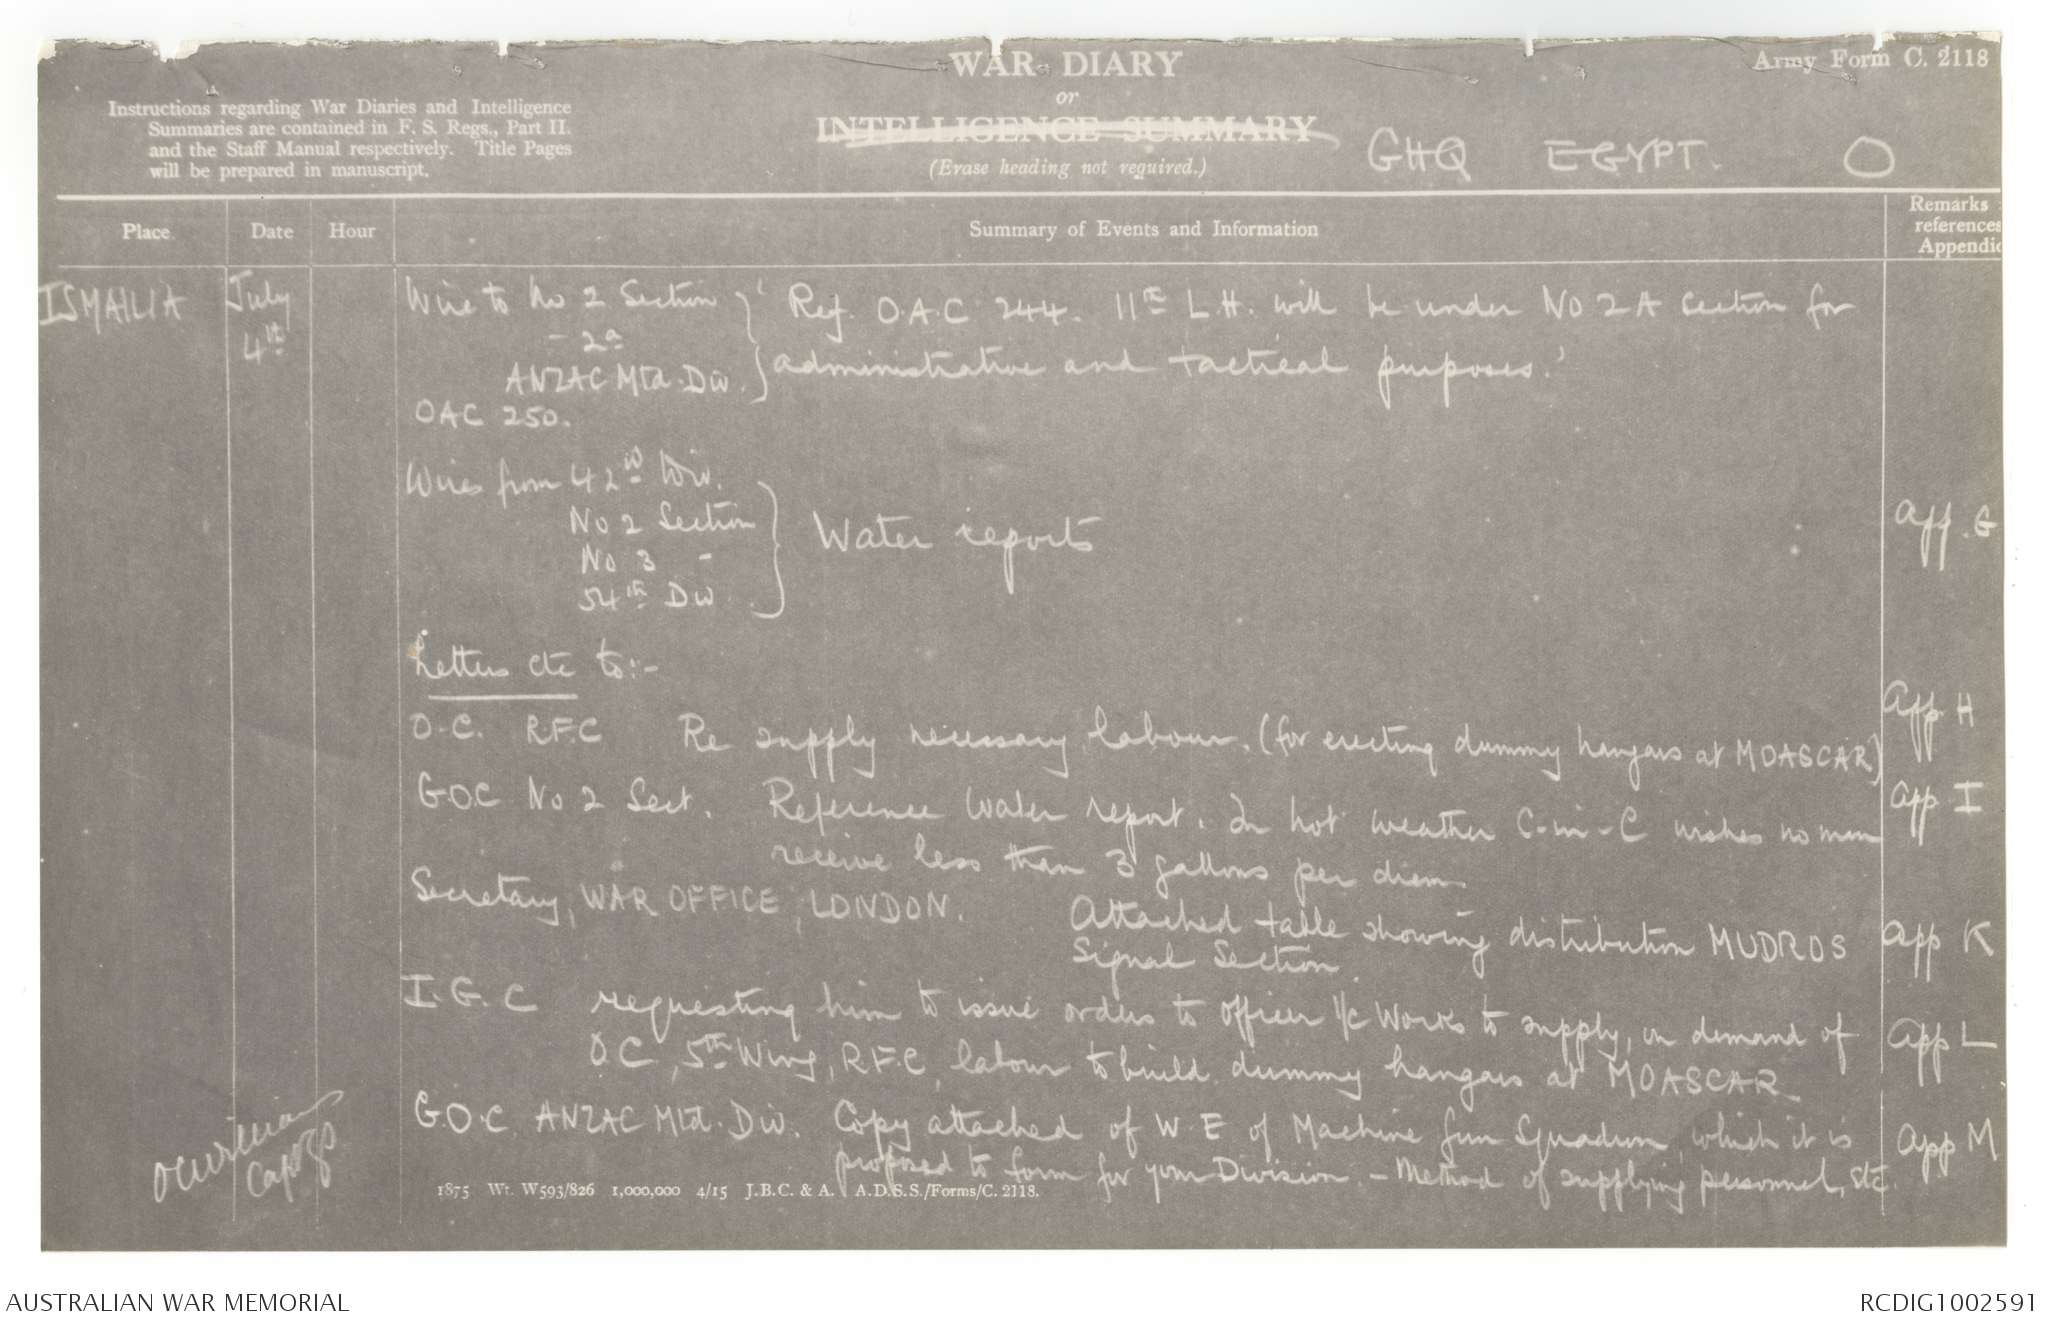 WAR DIARY
or
INTELLIGENCE SUMMARY
(Erase heading not required.)
Army Form C. 2118
Instructions regarding War Diaries and Intelligence
Summaries are contained in F. S. Regs., Part II.
and the Staff Manual respectively. Title Pages
will be prepared in manuscript.
GHQ EGYPT. O
Place Date Hour Summary of Events and Information Remarks
references
Appendic
ISMAILIA July 4th
Wire to No 2 Section
- 2a
ANZAC Mtd. Div.
OAC 250.
'Ref. O.A.C 244. 11th L.H. will be under No 2A section for
administrative and tactical purposes.'
Wires from 42nd Div.
No 2 Section
No 3 -
54th Div
Water reports App. G
Letters etc to:-
O.C. R.F.C Re supply necessary labour. (for erecting dummy hangars at MOASCAR) App. H
G.O.C No 2 Sect. Reference Water report. In hot weather C-in-C wishes no man App I
receive less than 3 gallons per diem
Secretary, WAR OFFICE, LONDON. Attached table showing distribution MUDROS App K
Signal Section.
I.G.C requesting him to issue orders to officer i/c Works to supply, on demand of App L
OC, 5th Wing, R.F.C, labour to build dummy hangars at MOASCAR
G.O.C. ANZAC Mtd. Div. Copy attached of W.E of Machine Gun Squadron which it is App M
proposed to form for your Division. - Method of supplying personnel, etc.
Capt GS
1875 Wt. W593/826 1,000,000 4/15 J.B.C. & A. A.D.S.S./Forms/C. 2118.
AUSTRALIAN WAR MEMORIAL RCDIG1002591